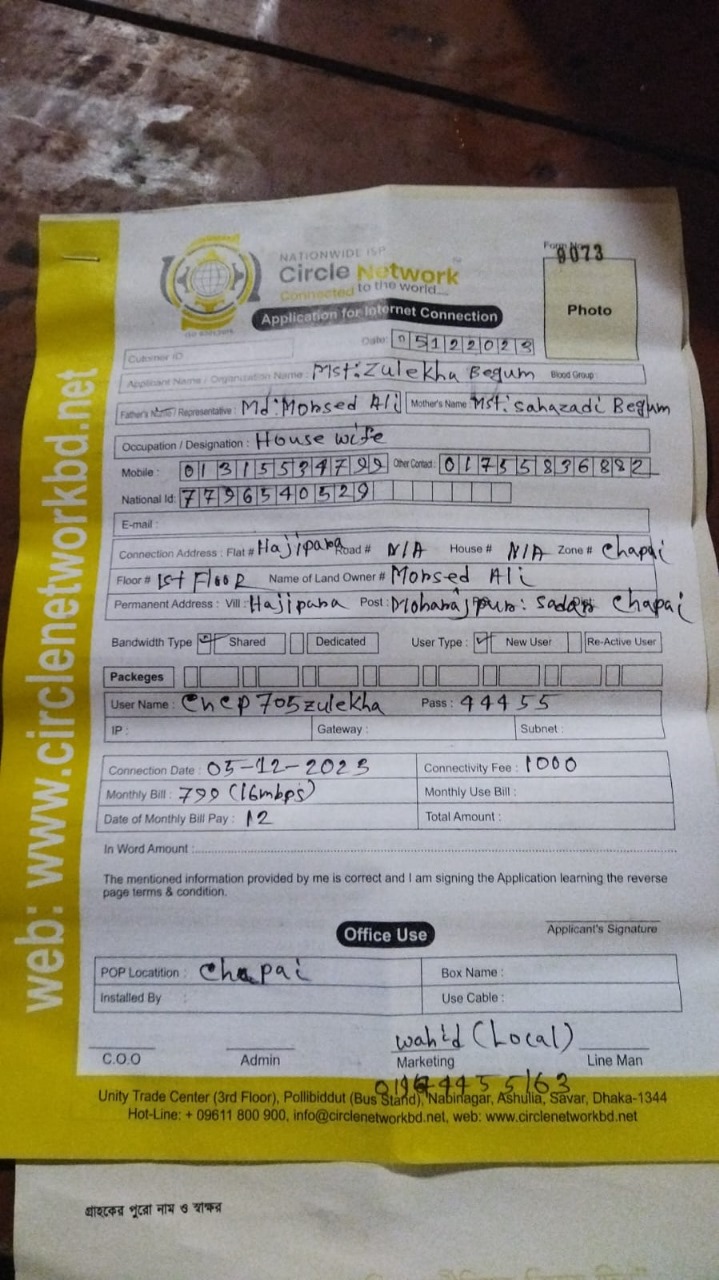 NATIONWIDE ISP
Circle Network
Connected to the world....
Form No
9073
Photo
Application for Internet Connection
Date: 05122023
Cutomer ID
Applicant Name / Organization Name : Mst: Zulekha Begum Blood Group :
Father's Name / Representative : Md: Morsed Ali Mother's Name : Mst: Sahazadi Begum
Occupation / Designation : House wife
Mobile : 01315534799 Other Contact : 01755836882
National Id: 7796540529
E-mail :
Connection Address : Flat # Hajipara Road # N/A House # N/A Zone # Chapai
Floor # 1st Floor Name of Land Owner # Morsed Ali
Permanent Address : Vill : Hajipara Post : Moharajpur: Sadar Chapai
Bandwidth Type Shared Dedicated User Type : New User Re-Active User
Packeges
User Name : cncp705zulekha Pass : 44455
IP : Gateway : Subnet :
Connection Date : 05-12-2023 Connectivity Fee : 1000
Monthly Bill : 799 (16mbps) Monthly Use Bill :
Date of Monthly Bill Pay : 12 Total Amount :
In Word Amount :
The mentioned information provided by me is correct and I am signing the Application learning the reverse
page terms & condition.
Applicant's Signature
Office Use
POP Locatition : Chapai Box Name :
Installed By : Use Cable :
wahid (Local)
C.O.O Admin Marketing Line Man
Unity Trade Center (3rd Floor), Pollibiddut (Bus Stand), Nabinagar, Ashulia, Savar, Dhaka-1344
Hot-Line: + 09611 800 900, info@circlenetworkbd.net, web: www.circlenetworkbd.net
web: www.circlenetworkbd.net
গ্রাহকের পুরো নাম ও স্বাক্ষর